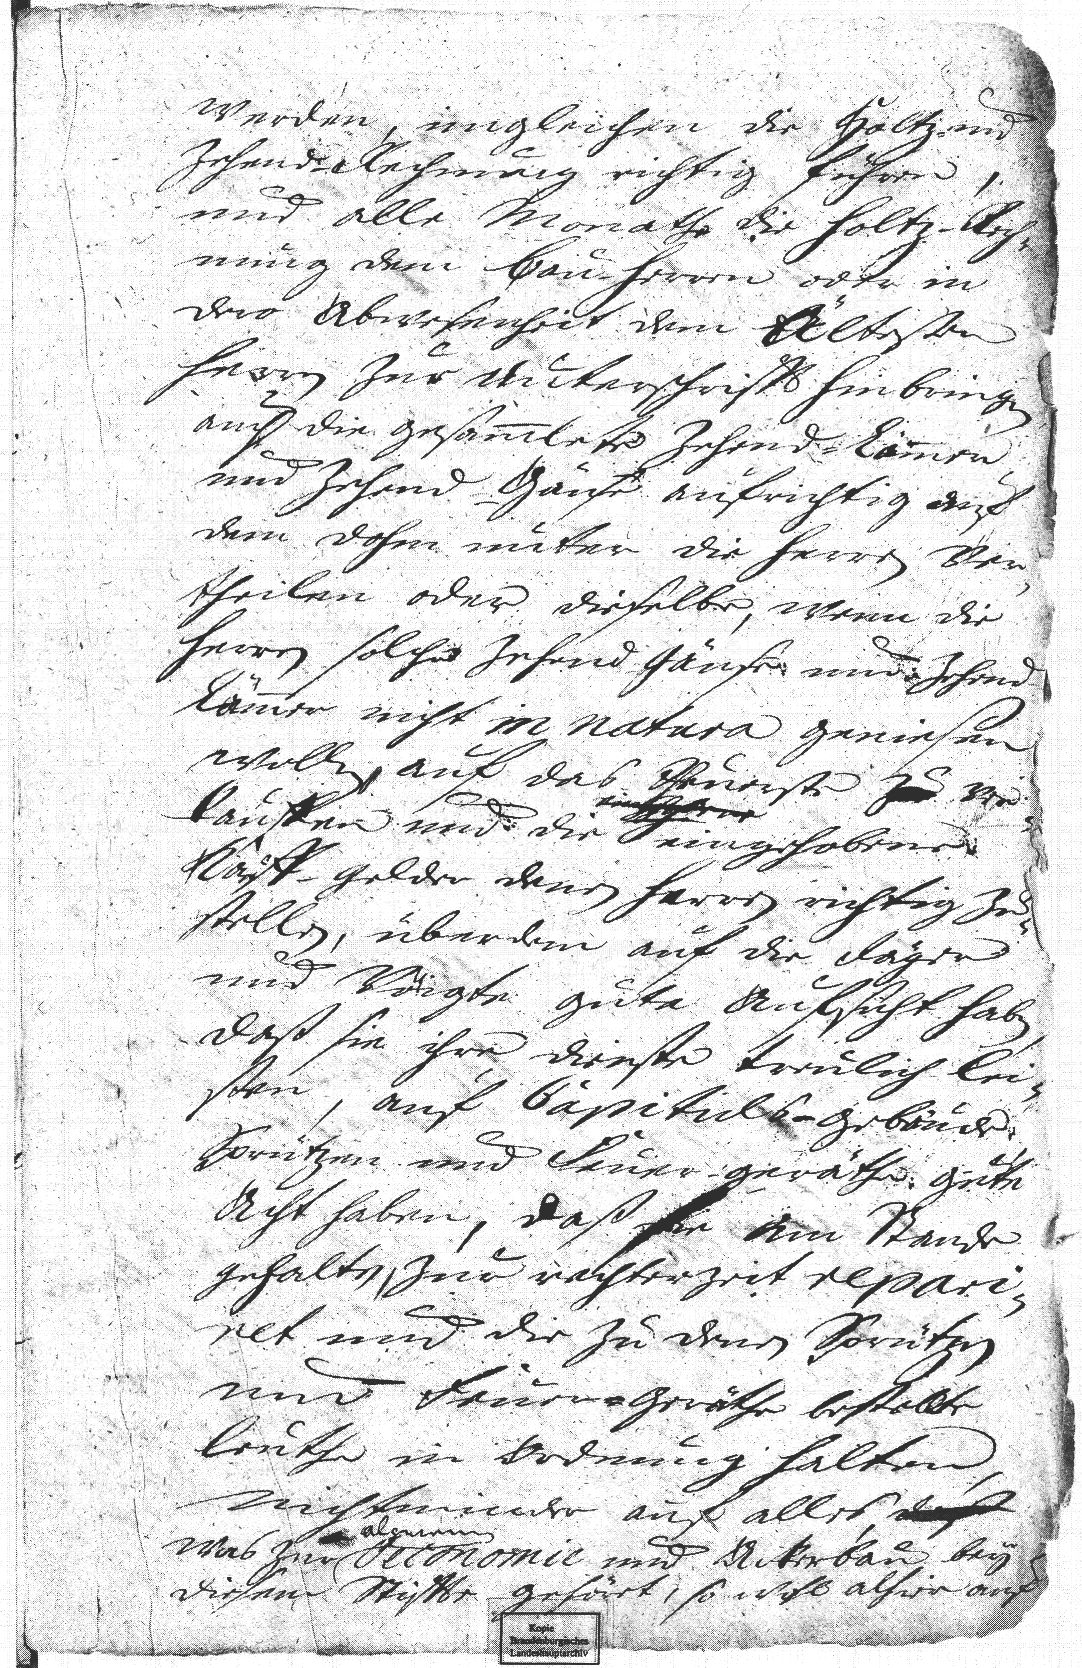 werden, imgleichen die Holtz- und
Zehend-Rechnung richtig führen,
und alle Monathe die Holtz-Rech-
nung dem Bau-Herren oder in
dero Abwesenheit dem Ältesten
Herrn zur Unterschrifft hinbringen
auch die gesammlete Zehend-Lämmer
und Zehend-Gänse aufrichtig auf
dem Dohm unter die Herren ver-
theilen oder dieselbe, wenn die
Herren solche Zehend Gänse und Zehend
Lämmer nicht in natura geniesen
wollen, auf das Theuerste zu ver
kauffen und die eingehobene
Kauff-gelder denen Herren richtig zu-
stellen, überdem auf die Jäger
und Vöigte gute Aufsicht haben
daß sie ihre Dienste treulich lei-
sten, auf Capituls-Gebäude,
Sprützen und Feuer-geräthe gute
Acht haben, daß sie im Stande
gehalten, zur rechter Zeit repari-
ret und die zu denen Sprützen
und Feuer-Geräthe bestellte
Leuthe in Ordnung halten,
Nichtminder auf alles, daß
was zur algemeinen Oeconomie und Ackerbau bey
diesem Stiffte gehöret, so wohl alhier auf
Kopie
Brandenburgisches
Landeshauptarchiv